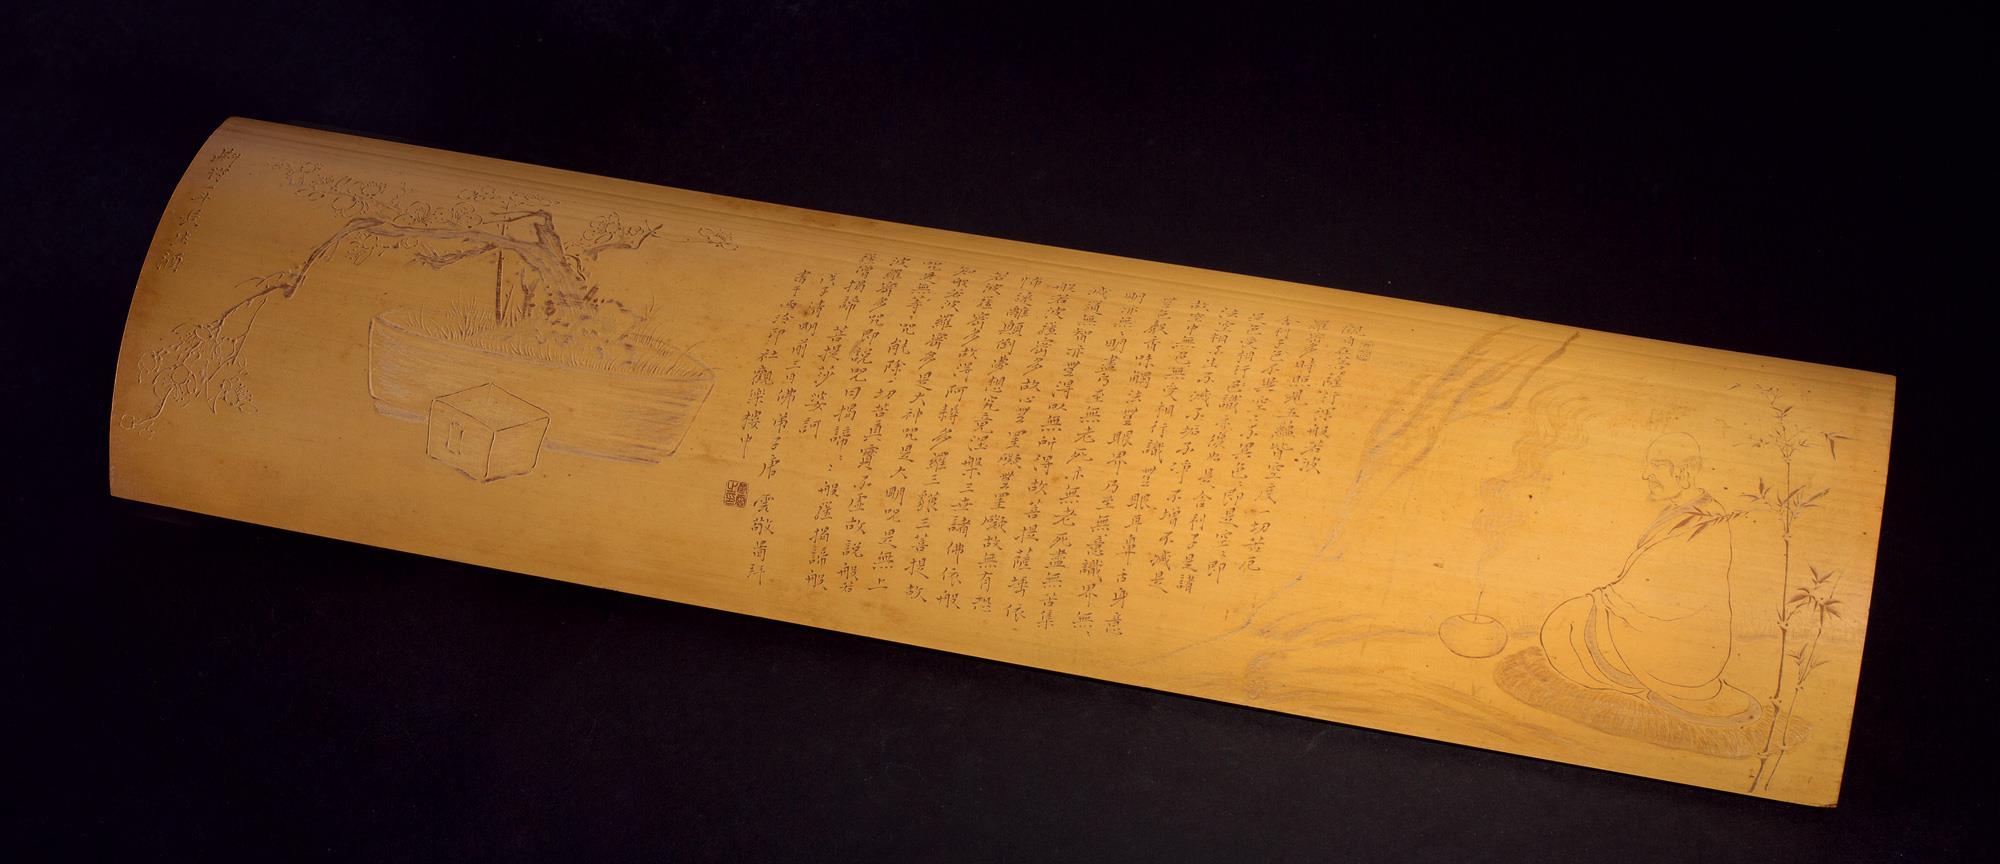 觀自在菩薩行深般若波
羅蜜多時照見五蘊皆空度一切苦厄
舍利子色不異空〻不異色〻即是空〻即
是色受想行識亦復如是舍利子是諸
法空相不生不滅不垢不淨不增不減是
故空中無色無受想行識無眼耳鼻舌身意
無色聲香味觸法無眼界乃至無意識界無〻
明亦無〻明盡乃至無老死亦無老死盡無苦集
滅道無智亦無得以無所得故菩提薩埵依
般若波羅蜜多故心無罣礙無罣礙故無有恐
怖遠離顛倒夢想究竟涅槃三世諸佛依般
若波羅蜜多故得阿耨多羅三藐三菩提故
知般若波羅蜜多是大神咒是大明咒是無上
咒是無等〻咒能除一切苦真實不虛故說般若
波羅蜜多咒即說咒曰揭諦〻〻般羅揭諦般
羅僧揭諦菩提莎婆訶
清明前三日佛弟子唐雲敬薌拜
書于西泠印社觀樂樓中